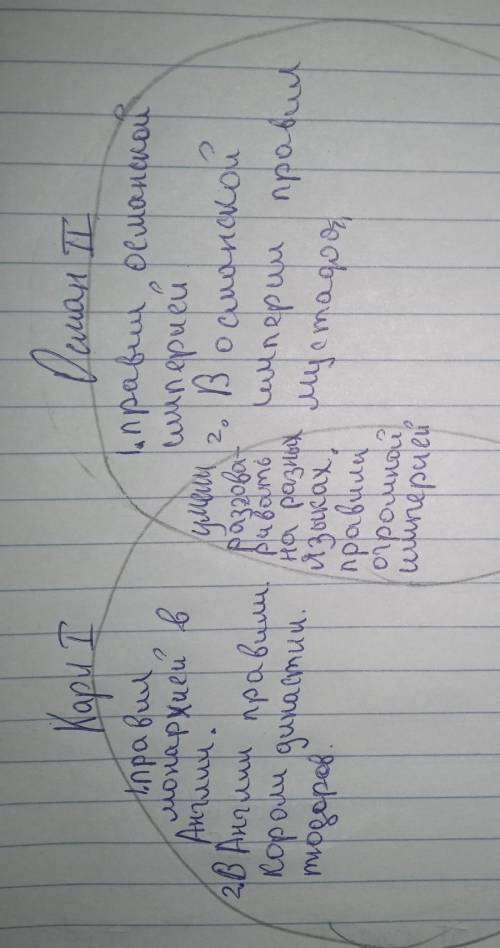 Карл I
1. правил
монархией в
Англии.
2. В Англии правили.
Короли династии.
тюдоров.
умели
разгова-
ривать
на разных
языках.
правили
огромной
империей
Осман II
1. правил османской
империей
2. В османской
империи правил